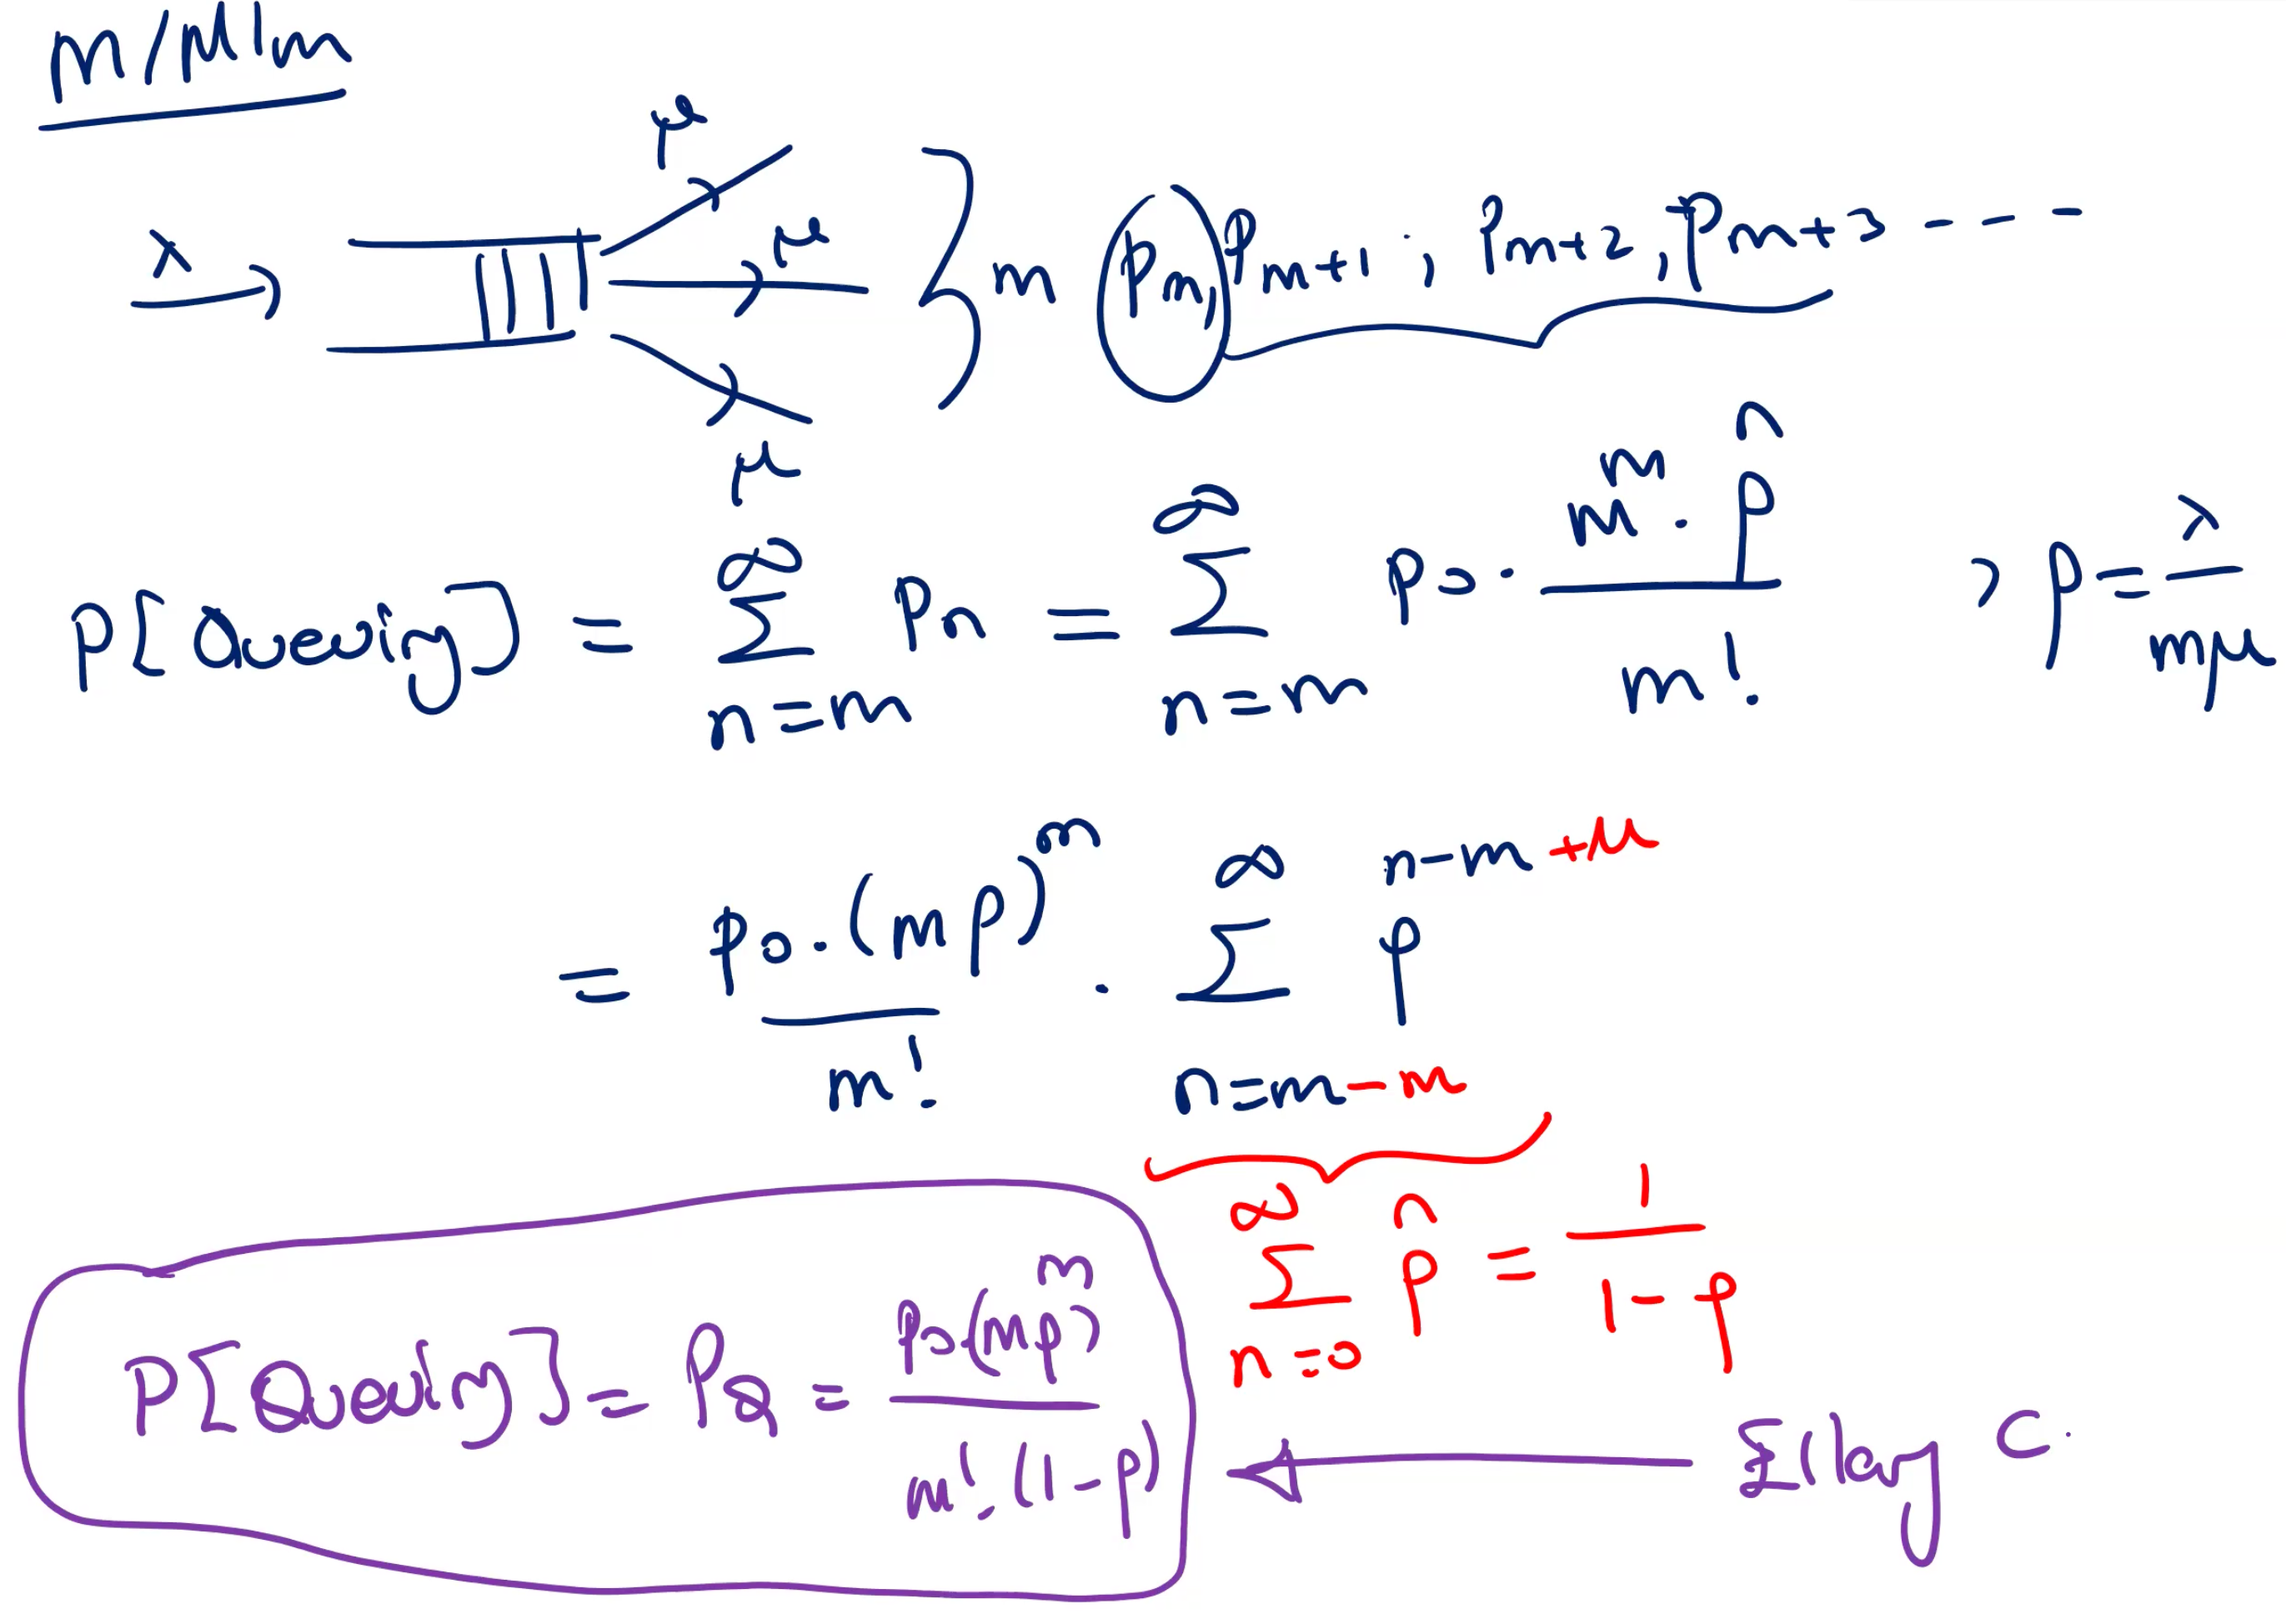 M/M/m
λ μ μ μ m Pm, Pm+1, Pm+2, Pm+3 - - -
P[Queuig] = ∞ Σ n=m Pn = ∞ Σ n=m P0 · m^m · ρ^n / m! , ρ = λ / mμ
= P0 · (mρ)^m / m! · ∞ Σ n=m-m ρ^n-m+m
∞ Σ n=0 ρ^n = 1 / 1-ρ
P[Queuing] = PQ = P0·(mρ)^m / m!·(1-ρ)
Erlang C.